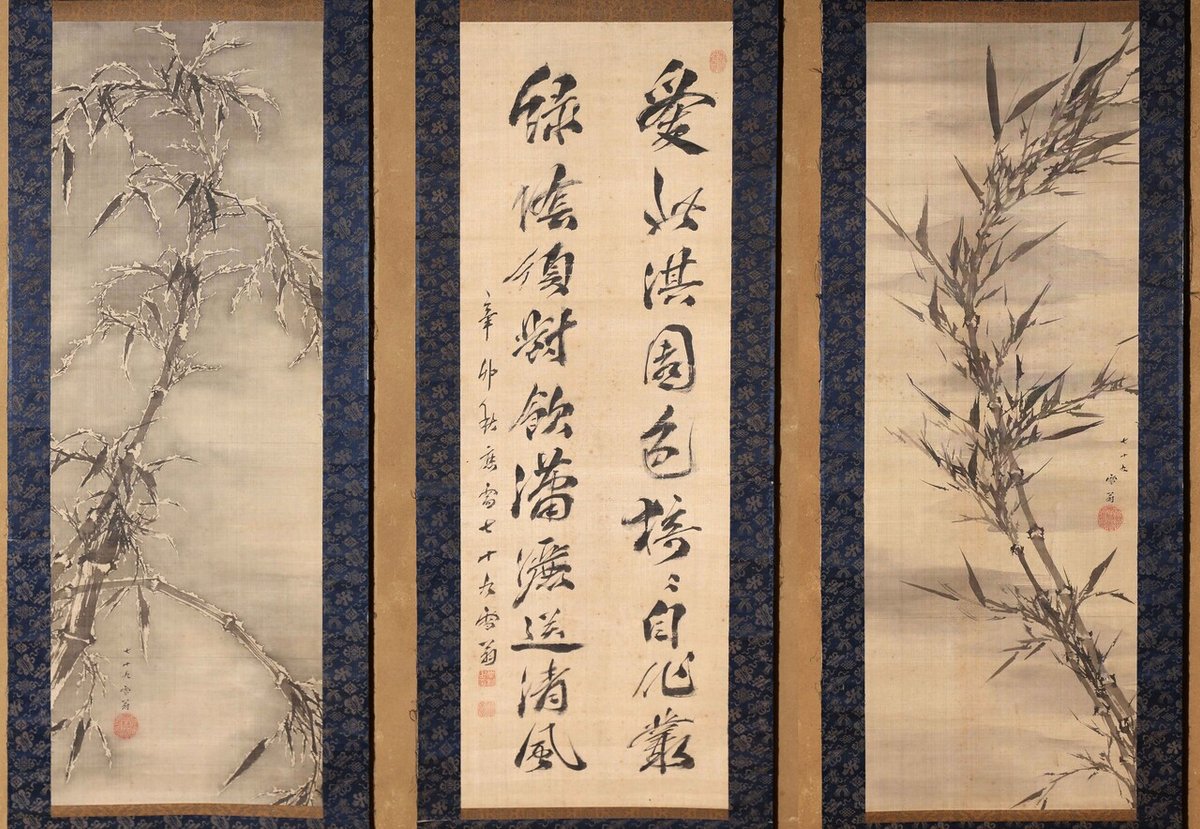 七十九
雪翁
愛此淇園色猗〻自作叢
緑陰須對飲瀟灑送清風
辛卯秋應需七十九雪翁
七十九雪翁